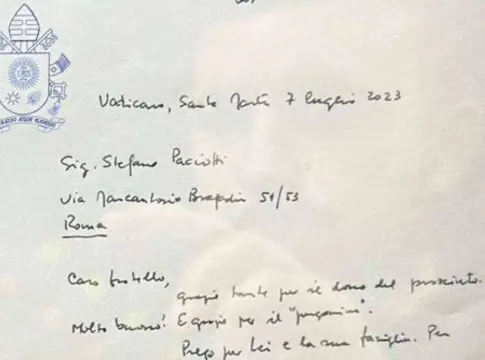 Vaticano, Santa Marta 7 luglio 2023
Sig. Stefano Paciotti
Via Marcantonio Bragadin 51/53
Roma
Caro fratello,
grazie tante per il dono del prosciuto.
Molto buono! E grazie per il
Prego per Lei e la sua famiglia. Per